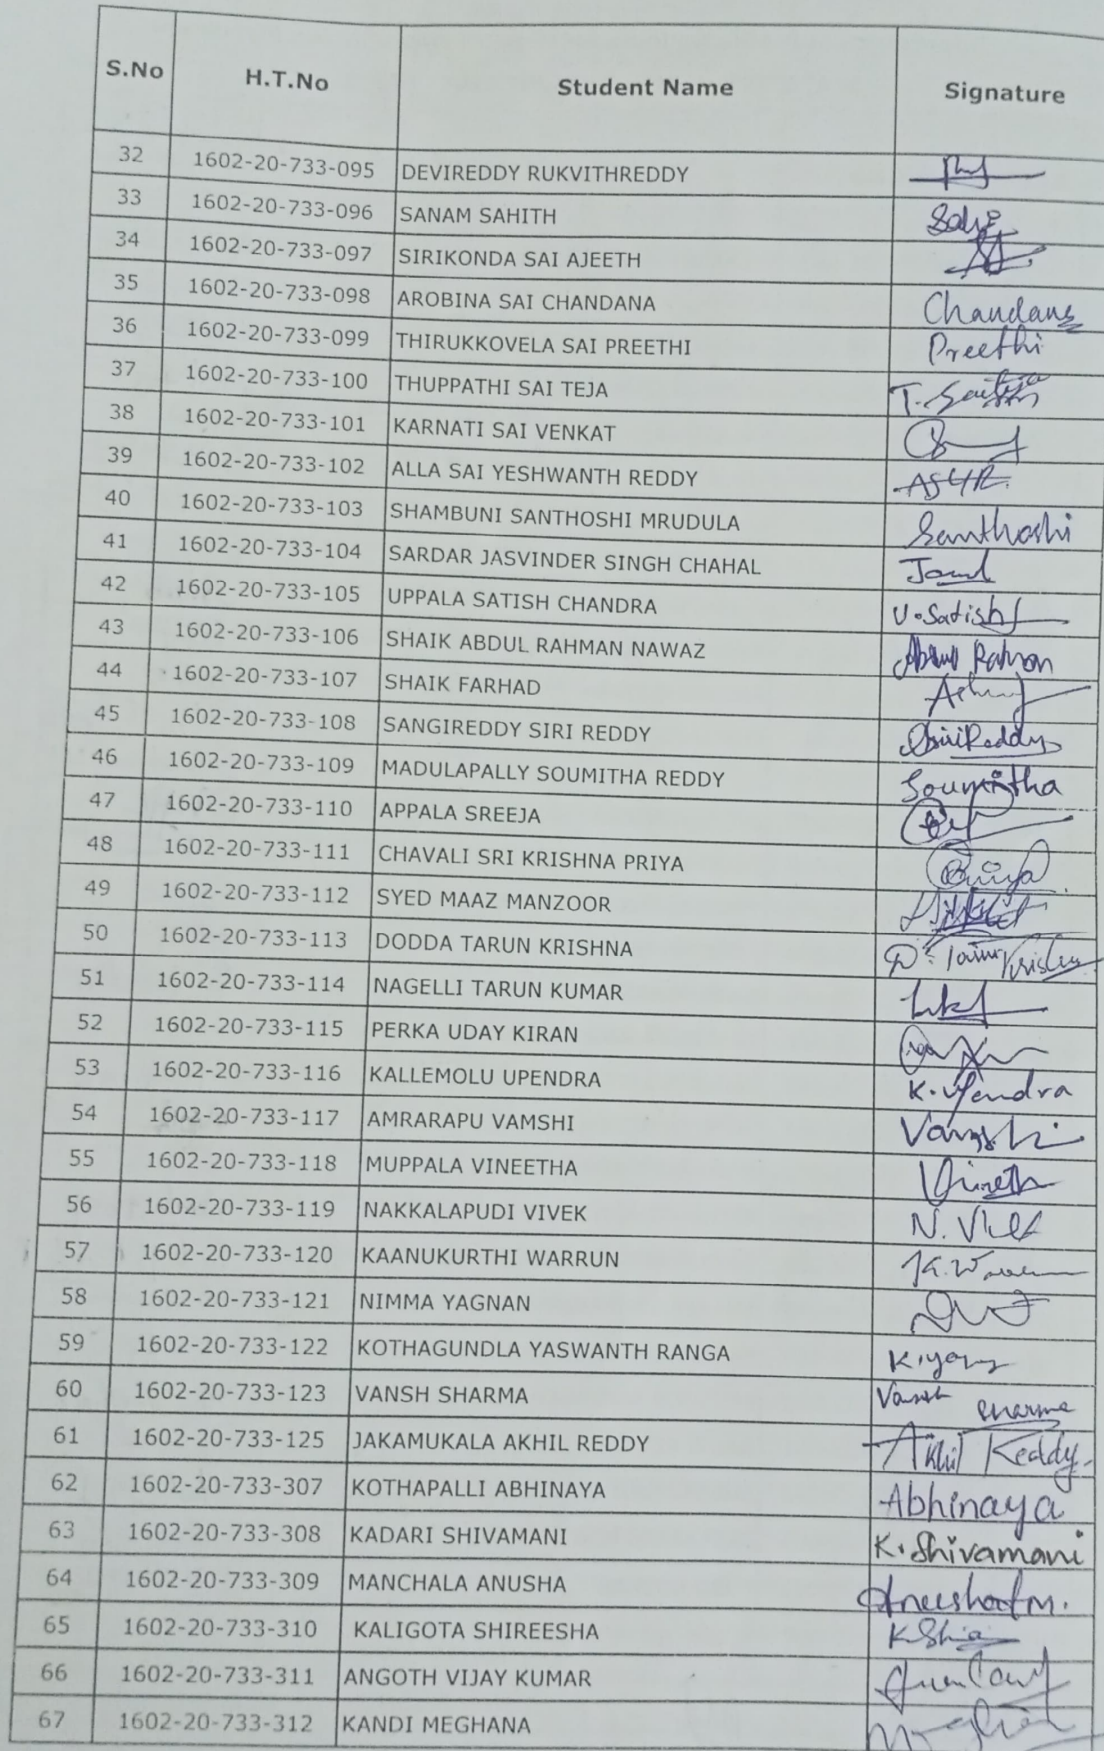 S.No H.T.No Student Name Signature
32 1602-20-733-095 DEVIREDDY RUKVITHREDDY
33 1602-20-733-096 SANAM SAHITH
34 1602-20-733-097 SIRIKONDA SAI AJEETH
35 1602-20-733-098 AROBINA SAI CHANDANA Chandana
36 1602-20-733-099 THIRUKKOVELA SAI PREETHI Preethi
37 1602-20-733-100 THUPPATHI SAI TEJA T. Saiteja
38 1602-20-733-101 KARNATI SAI VENKAT
39 1602-20-733-102 ALLA SAI YESHWANTH REDDY ASYR
40 1602-20-733-103 SHAMBUNI SANTHOSHI MRUDULA Santhoshi
41 1602-20-733-104 SARDAR JASVINDER SINGH CHAHAL
42 1602-20-733-105 UPPALA SATISH CHANDRA U. Satish
43 1602-20-733-106 SHAIK ABDUL RAHMAN NAWAZ Abdul Rahman
44 1602-20-733-107 SHAIK FARHAD
45 1602-20-733-108 SANGIREDDY SIRI REDDY SiriReddy
46 1602-20-733-109 MADULAPALLY SOUMITHA REDDY Soumitha
47 1602-20-733-110 APPALA SREEJA
48 1602-20-733-111 CHAVALI SRI KRISHNA PRIYA Priya
49 1602-20-733-112 SYED MAAZ MANZOOR
50 1602-20-733-113 DODDA TARUN KRISHNA D. Tarun Krishna
51 1602-20-733-114 NAGELLI TARUN KUMAR
52 1602-20-733-115 PERKA UDAY KIRAN
53 1602-20-733-116 KALLEMOLU UPENDRA K. Upendra
54 1602-20-733-117 AMRARAPU VAMSHI Vamshi
55 1602-20-733-118 MUPPALA VINEETHA Vineetha
56 1602-20-733-119 NAKKALAPUDI VIVEK N. Vivek
57 1602-20-733-120 KAANUKURTHI WARRUN K. Warrun
58 1602-20-733-121 NIMMA YAGNAN
59 1602-20-733-122 KOTHAGUNDLA YASWANTH RANGA
60 1602-20-733-123 VANSH SHARMA Vansh Sharma
61 1602-20-733-125 JAKAMUKALA AKHIL REDDY Akhil Reddy
62 1602-20-733-307 KOTHAPALLI ABHINAYA Abhinaya
63 1602-20-733-308 KADARI SHIVAMANI K. Shivamani
64 1602-20-733-309 MANCHALA ANUSHA
65 1602-20-733-310 KALIGOTA SHIREESHA
66 1602-20-733-311 ANGOTH VIJAY KUMAR
67 1602-20-733-312 KANDI MEGHANA